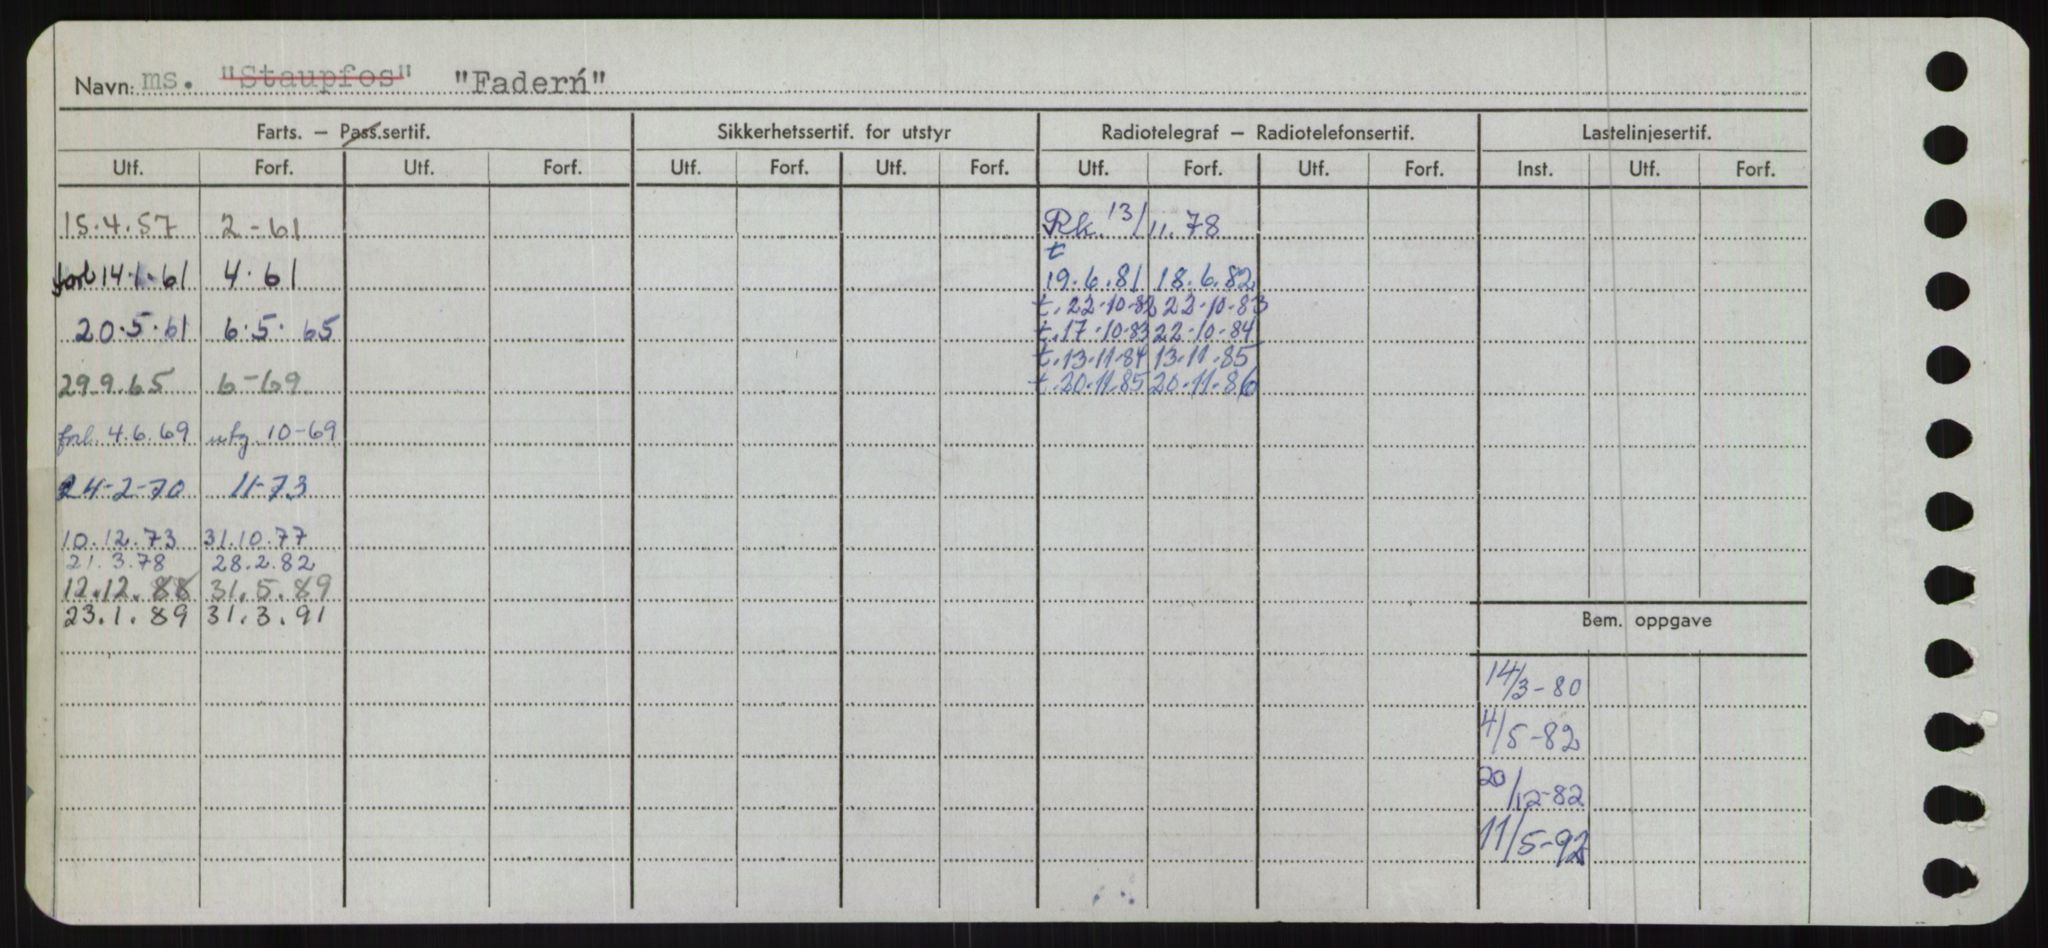 Navn: ms. "Staupfos" "Faderń"
Farts. — Pass.sertif. Sikkerhetssertif. for utstyr Radiotelegraf — Radiotelefonsertif. Lastelinjesertif.
Utf. Forf. Utf. Forf. Utf. Forf. Utf. Forf. Utf. Forf. Utf. Forf. Inst. Utf. Forf.
15.4.57 2-61 Rk. 13/11.78
t
forl 14.1.61 4.61 19.6.81 18.6.82
t.22-10-82 22-10-83
20.5.61 6.5.65 t.17-10-83 22-10-84
t.13-11-84 13-11-85
29.9.65 6-69 t.20-11.85 20-11-86
forl. 4.6.69 utg. 10-69
24-2-70 11-73
10.12.73 31.10.77
21.3.78 28.2.82
12.12.88 31.5.89
23.1.89 31.3.91
Bem. oppgave
14/3-80
4/5-82
20/12-82
11/5-92